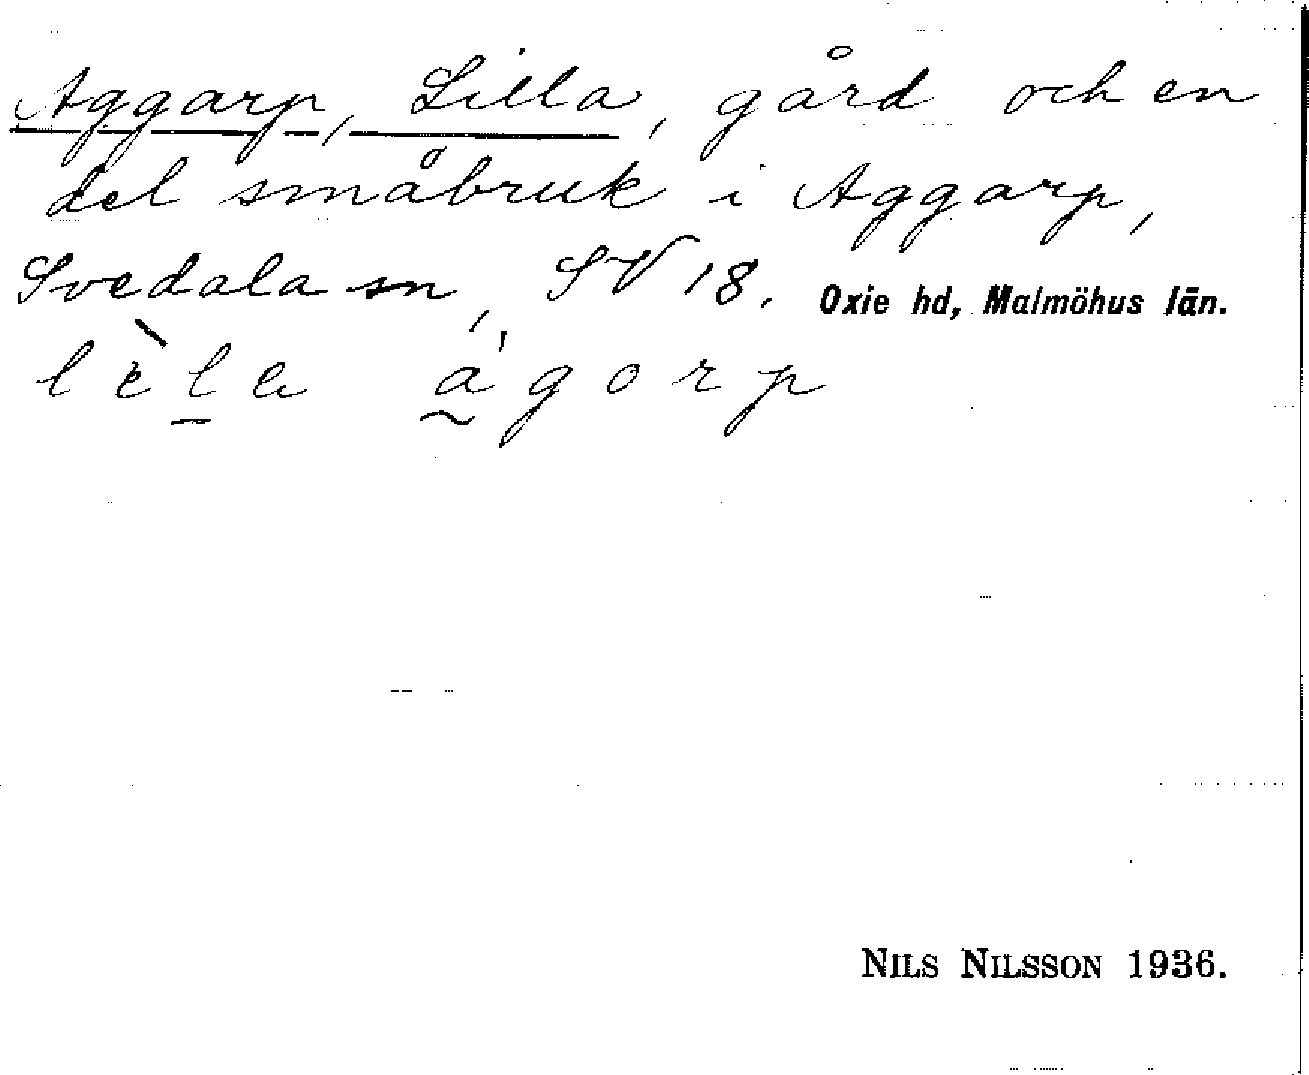 Aggarp, Lilla, gård och en
del småbruk i Aggarp,
Svedala sn, SV 18. Oxie hd, Malmöhus län.
lèla ágorp
NILS NILSSON 1936.